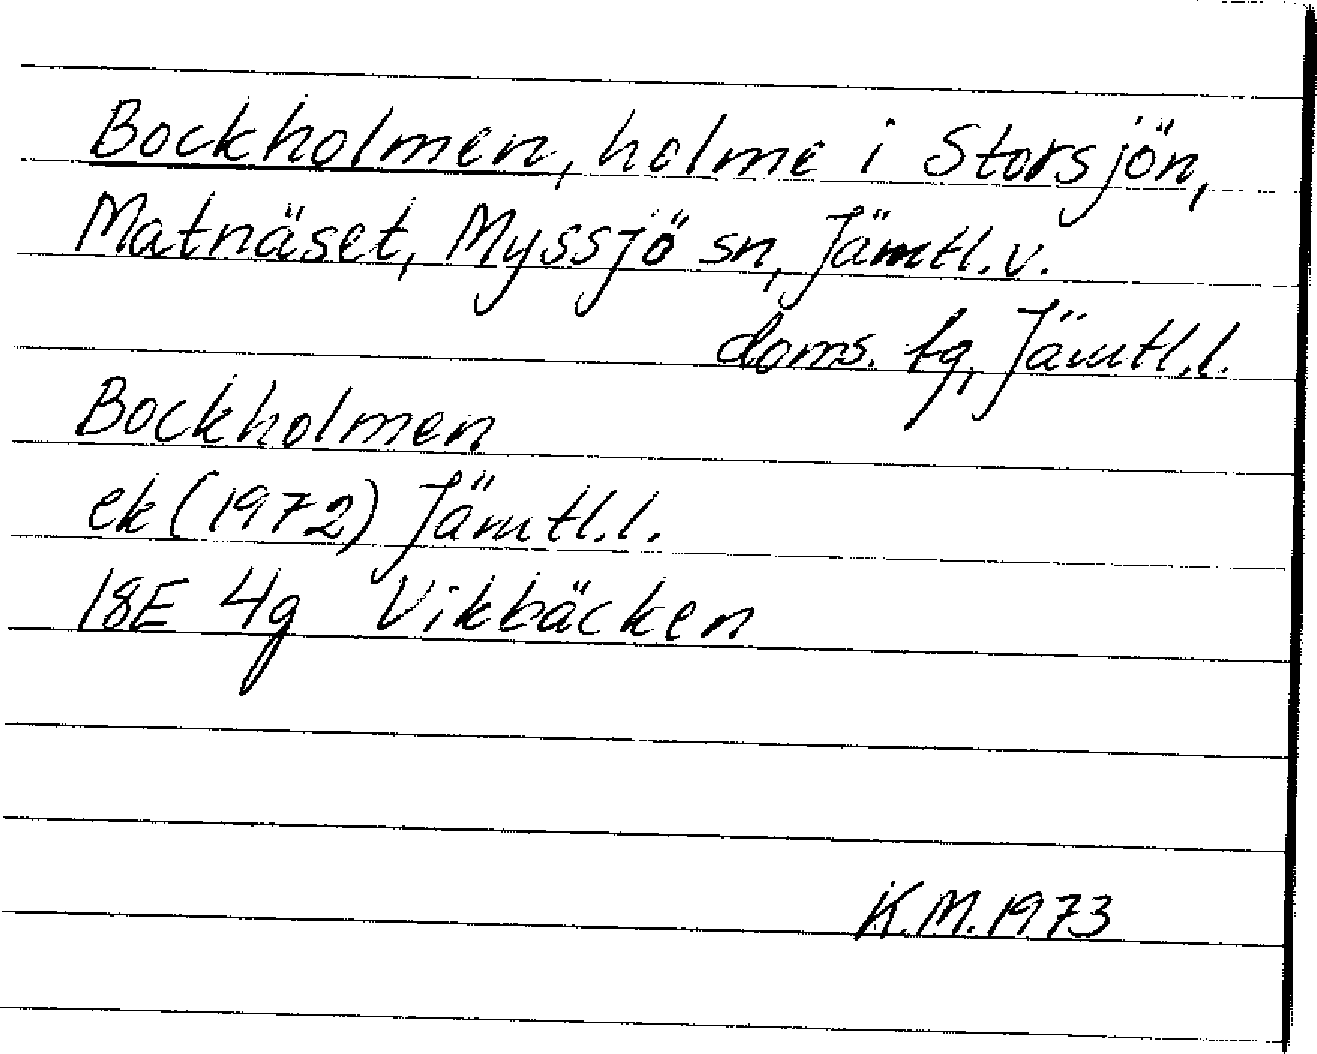 Bockholmen, holme i Storsjön,
Matnäset, Myssjö sn, Jämtl. v.
doms. tg, Jämtl. l.
Bockholmen
ek (1972) Jämtl. l.
18E 4g Vikbäcken
K.M. 1973